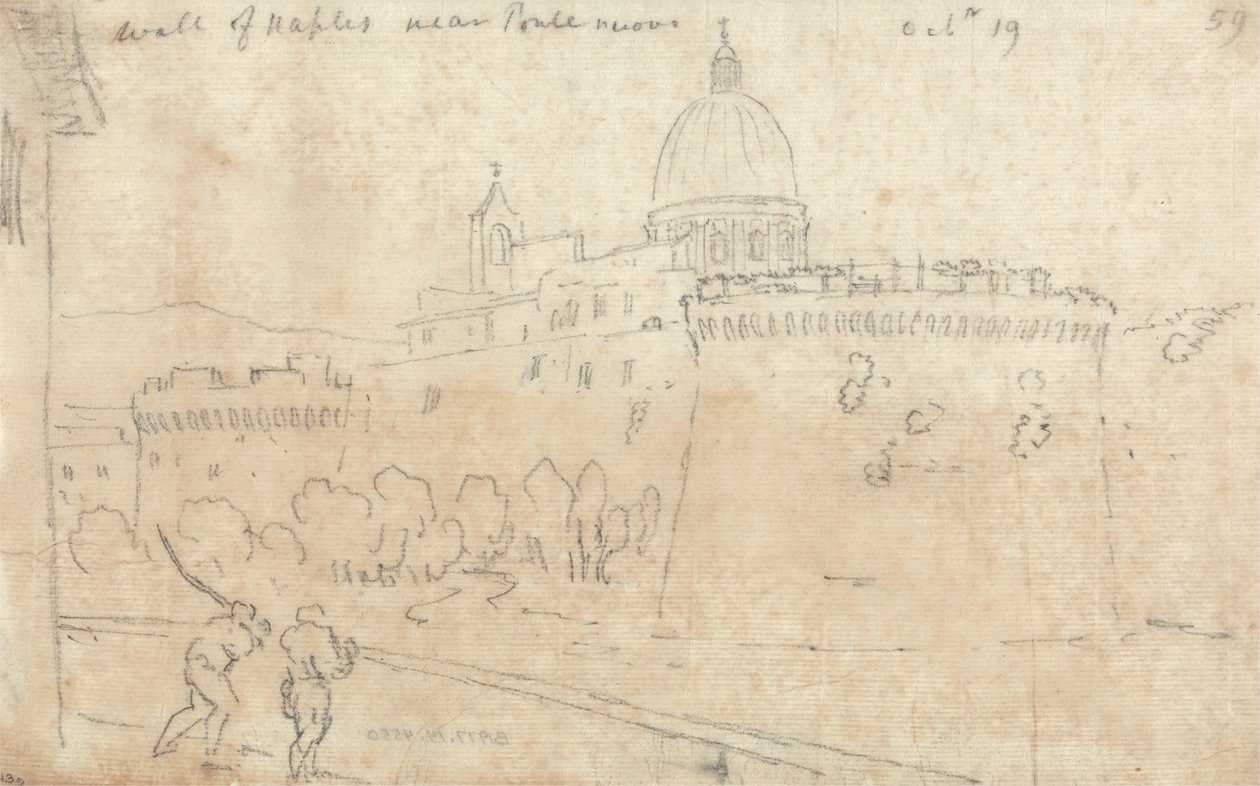 wall of Naples near Ponte nuovo Octr 19 59
B1977.14.4550
139